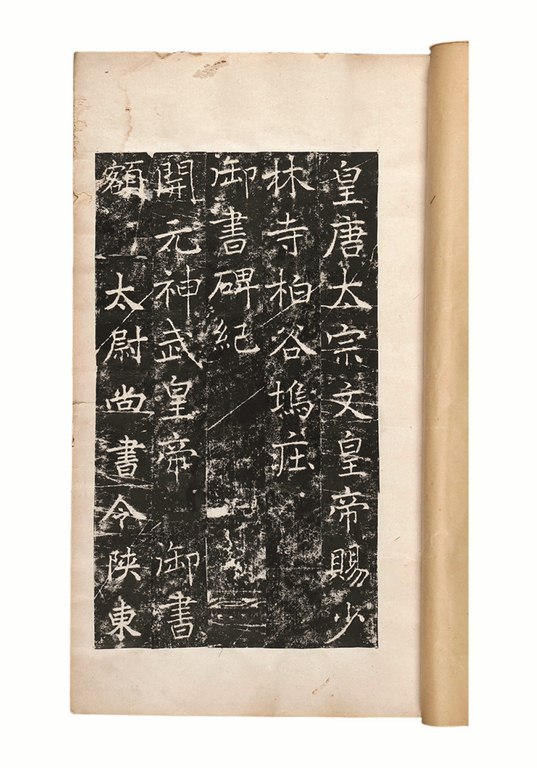 皇唐太宗文皇帝賜少
林寺柏谷塢庄
御書碑紀
開元神武皇帝 御書
額 太尉尚書令陝東